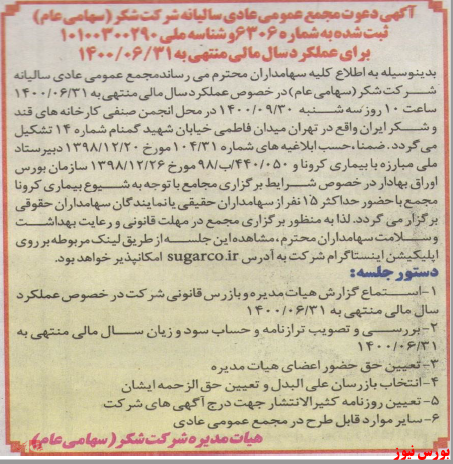 آگهی دعوت مجمع عمومی عادی سالیانه شرکت شکر (سهامی عام)
ثبت شده به شماره ۶۳۰۶ و شناسه ملی ۱۰۱۰۰۳۰۰۲۹۰
برای عملکرد سال مالی منتهی به ۱۴۰۰/۰۶/۳۱
بدینوسیله به اطلاع کلیه سهامداران محترم می رساند مجمع عمومی عادی سالیانه
شرکت شکر (سهامی عام) در خصوص عملکرد سال مالی منتهی به ۱۴۰۰/۰۶/۳۱
ساعت ۱۰ روز سه شنبه ۱۴۰۰/۰۹/۳۰ در محل انجمن صنفی کارخانه های قند
و شکر ایران واقع در تهران میدان فاطمی خیابان شهید گمنام شماره ۱۴ تشکیل
می گردد. ضمنا، حسب ابلاغیه های شماره ۱۰۴/۳۱ مورخ ۱۳۹۸/۱۲/۲۰ دبیرستاد
ملی مبارزه با بیماری کرونا و ۴۴۰/۰۵۰/ب/۹۸ مورخ ۱۳۹۸/۱۲/۲۶ سازمان بورس
اوراق بهادار در خصوص شرایط برگزاری مجامع با توجه به شیوع بیماری کرونا
مجمع با حضور حداکثر ۱۵ نفر از سهامداران حقیقی یا نمایندگان سهامداران حقوقی
برگزار می گردد. لذا به منظور برگزاری مجمع در مهلت قانونی و رعایت بهداشت
و سلامت سهامداران محترم، مشاهده این جلسه از طریق لینک مربوطه بر روی
اپلیکیشن اینستاگرام شرکت به آدرس sugarco.ir امکانپذیر خواهد بود.
دستور جلسه:
۱- استماع گزارش هیات مدیره و بازرس قانونی شرکت در خصوص عملکرد
سال مالی منتهی به ۱۴۰۰/۰۶/۳۱
۲- بررسی و تصویب ترازنامه و حساب سود و زیان سال مالی منتهی به
۱۴۰۰/۰۶/۳۱
۳- تعیین حق حضور اعضای هیات مدیره
۴- انتخاب بازرسان علی البدل و تعیین حق الزحمه ایشان
۵- تعیین روزنامه کثیرالانتشار جهت درج آگهی های شرکت
۶- سایر موارد قابل طرح در مجمع عمومی عادی
هیات مدیره شرکت شکر (سهامی عام)
بورس نیوز